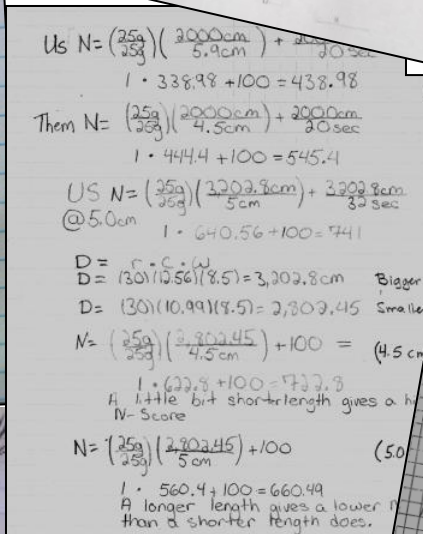 Us N= (25g/25g)(2000cm/5.9cm) + 20 sec
1 · 338.98 + 100 = 438.98
Them N= (25g/25g)(2000cm/4.5cm) + 2000cm/20sec
1 · 444.4 + 100 = 545.4
US N= (25g/25g)(3,202.8cm/5cm) + 3202.8cm/32 sec
@5.0cm
1 · 640.56 + 100 = 741
D = r · c · w
D = (30)(12.56)(8.5) = 3,202.8cm Bigger
D= (30)(10.99)(8.5) = 2,802.45 Smalle
N= (25g/25g)(2,802.45/4.5cm) + 100 = (4.5 cm
1 · 622.8 + 100 = 722.8
A little bit shorter length gives a hi
N-Score
N= (25g/25g)(2,802.45/5cm) + 100 (5.0
1 · 560.4 + 100 = 660.49
A longer length gives a lower N
than a shorter length does.